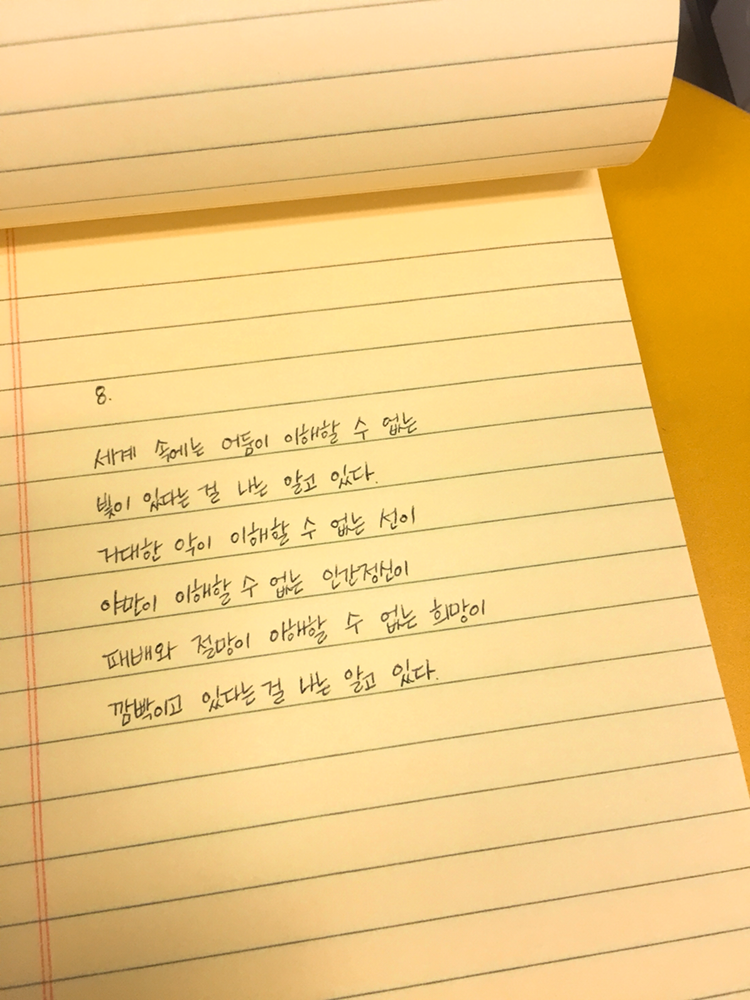 8.
세계 속에는 어둠이 이해할 수 없는
빛이 있다는 걸 나는 알고 있다.
거대한 악이 이해할 수 없는 선이
야만이 이해할 수 없는 인간정신이
패배와 절망이 이해할 수 없는 희망이
깜빡이고 있다는 걸 나는 알고 있다.